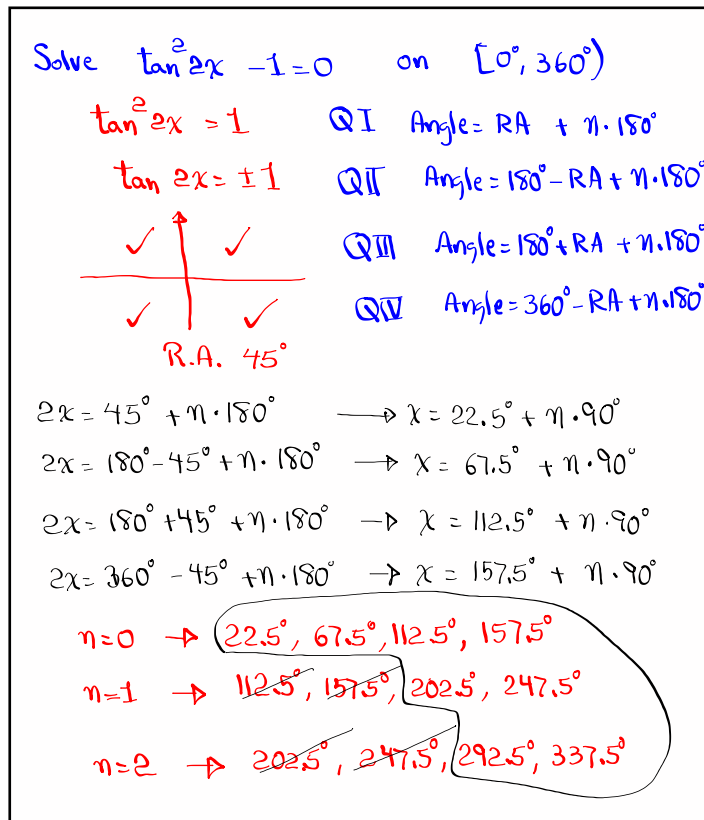 Solve tan² 2x - 1 = 0 on [0°, 360°)
tan² 2x = 1 QI Angle = RA + n·180°
tan 2x = ±1 QII Angle = 180° - RA + n·180°
✓ ✓ QIII Angle = 180° + RA + n·180°
✓ ✓ QIV Angle = 360° - RA + n·180°
R.A. 45°
2x = 45° + n·180° → x = 22.5° + n·90°
2x = 180° - 45° + n·180° → x = 67.5° + n·90°
2x = 180° + 45° + n·180° → x = 112.5° + n·90°
2x = 360° - 45° + n·180° → x = 157.5° + n·90°
n=0 → 22.5°, 67.5°, 112.5°, 157.5°
n=1 → 112.5°, 157.5°, 202.5°, 247.5°
n=2 → 202.5°, 247.5°, 292.5°, 337.5°